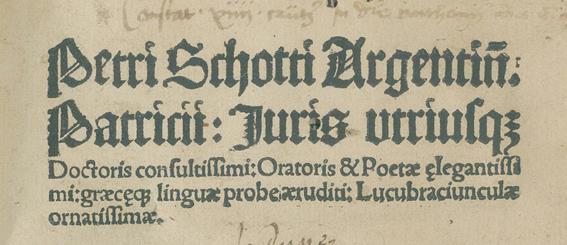 Petri Schotti Argentiñ.
Patricii: Juris vtriusqꝫ
Doctoris consultissimi: Oratoris & Poetæ ęlegantissi
mi: græcęqꝫ linguæ probe æruditi: Lucubraciunculæ
ornatissimæ.